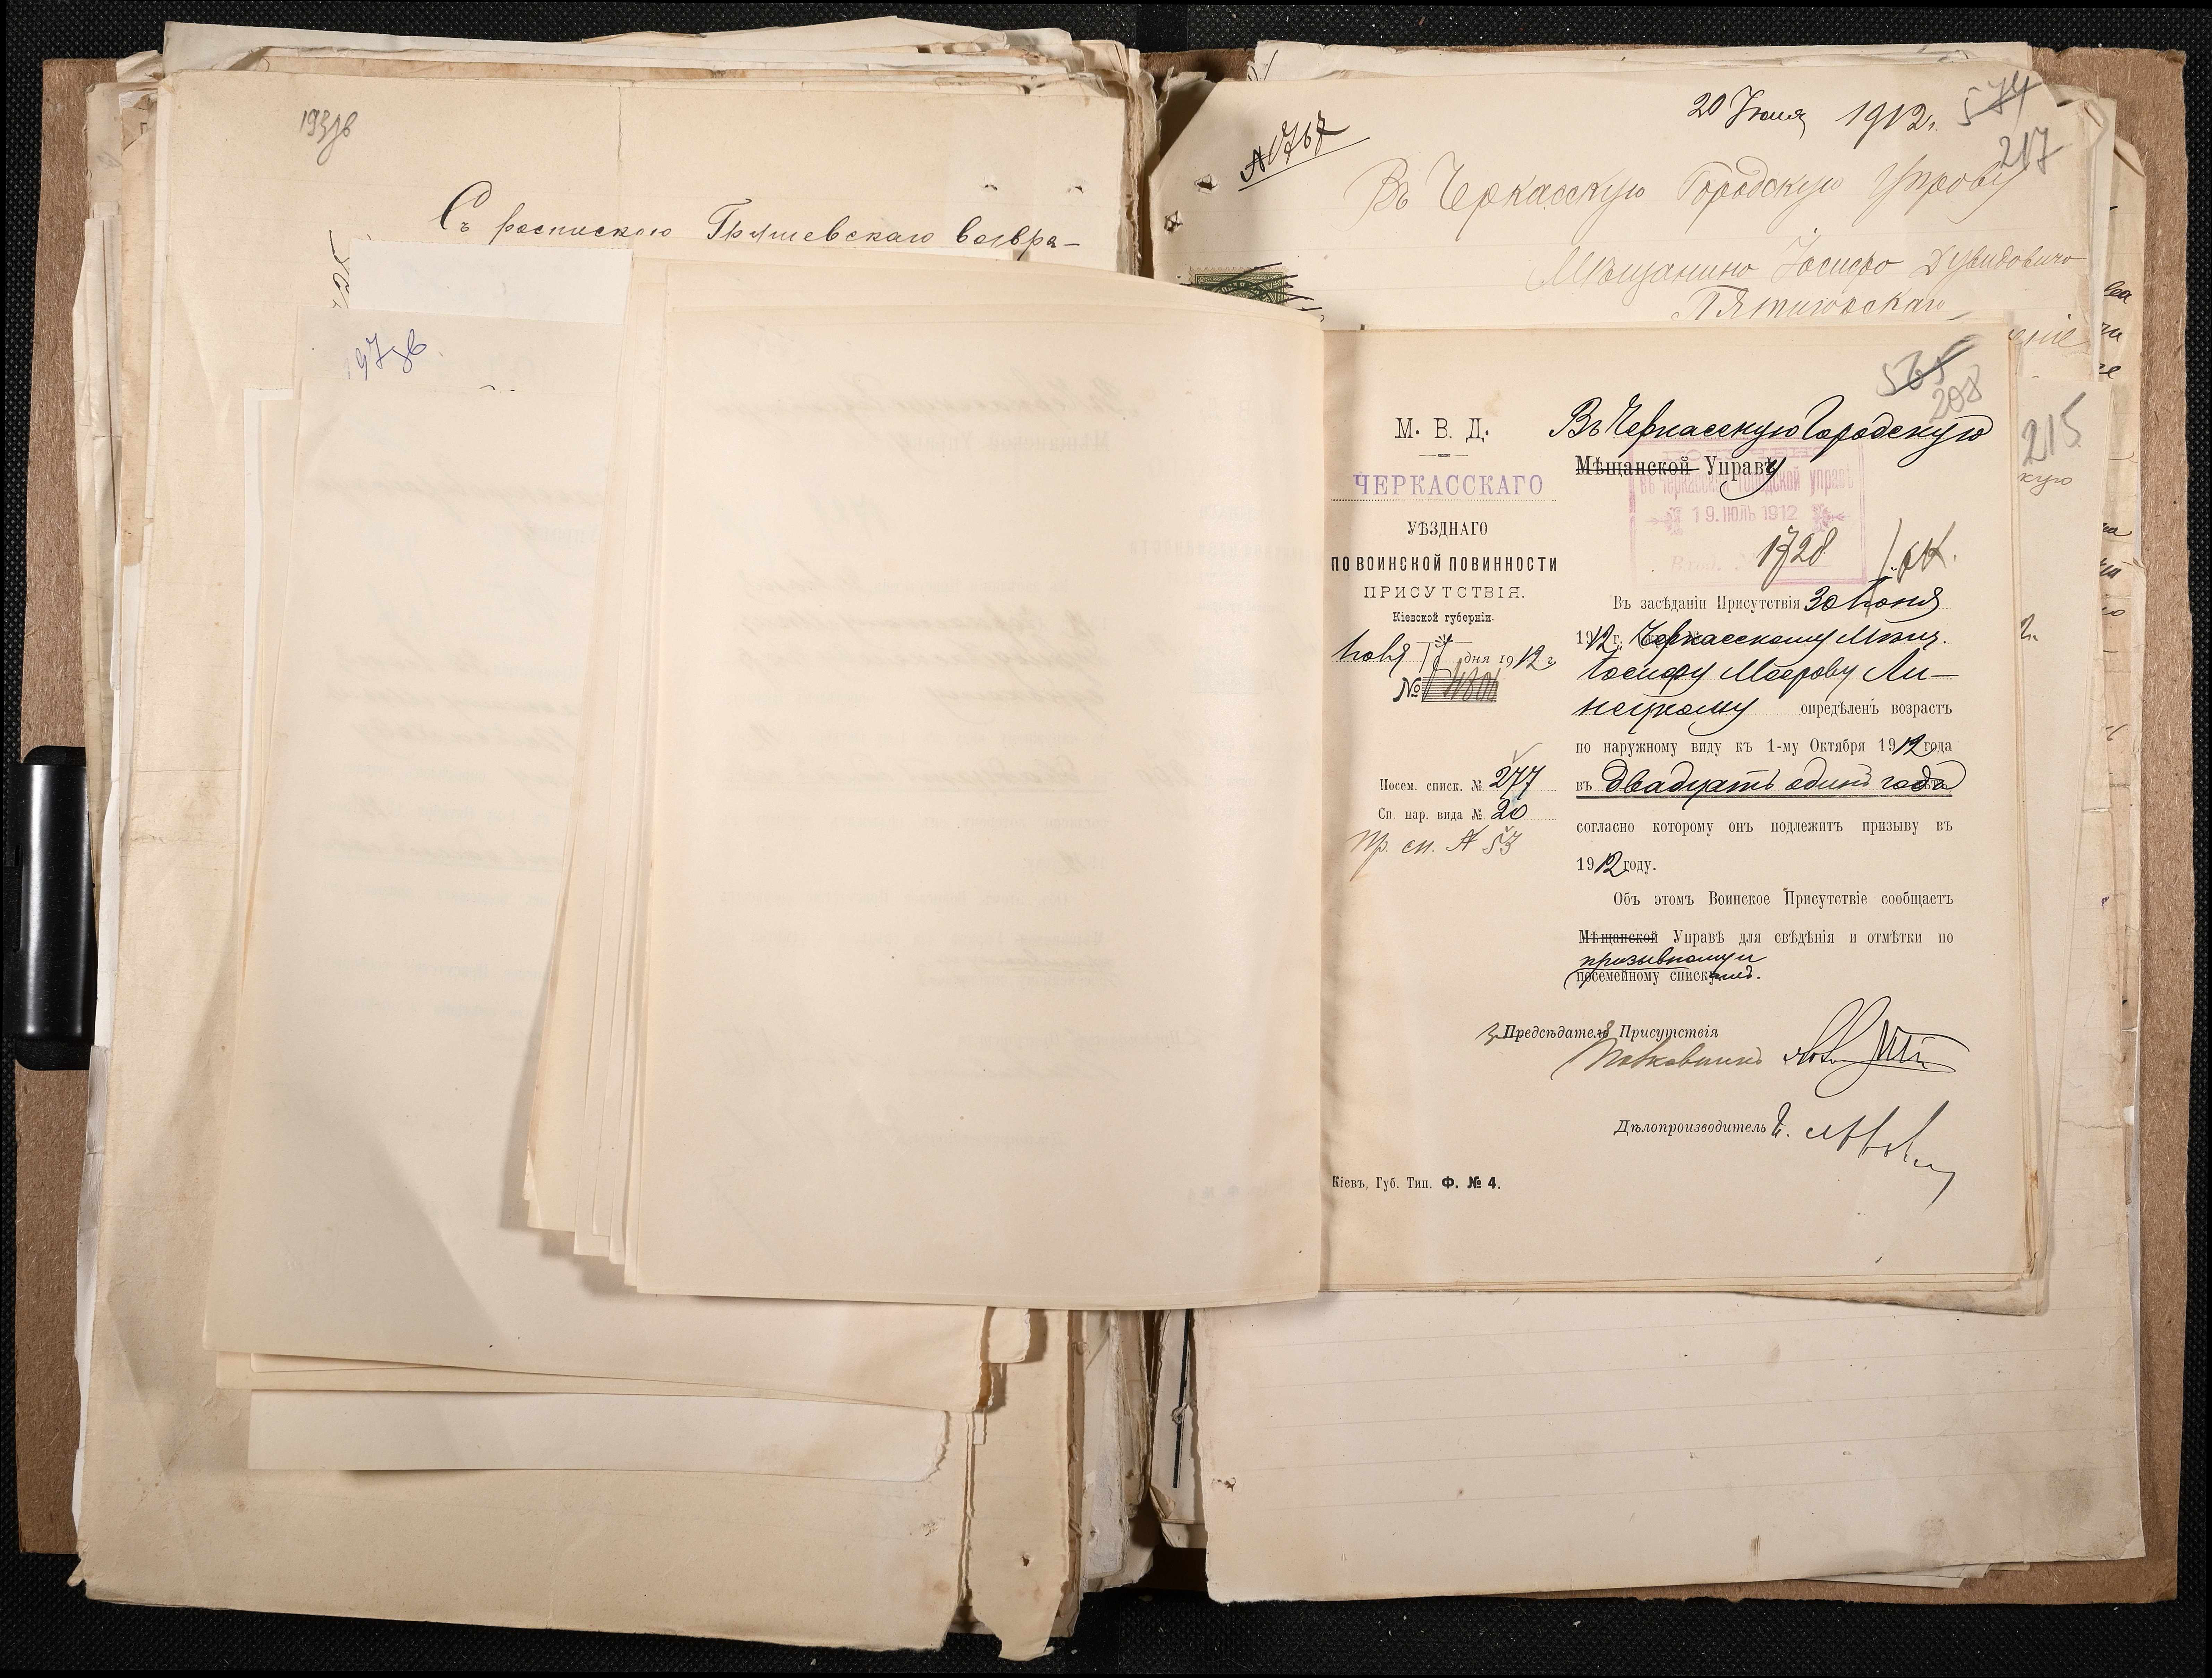 193зв
Съ роспискою Гришевскаго возвра-
197зв.
20 Іюля 1912 г.
574
217
№ 1767
Въ Черкасскую Городскую Управу
Мѣщанина Іосифа Дувидовича
Пятигорскаго
ение
215
кую
565
208
М. В. Д.
ЧЕРКАССКАГО
УѢЗДНАГО
ПО ВОИНСКОЙ ПОВИННОСТИ
ПРИСУТСТВІЯ.
Кіевской губерніи.
Іюля 17 дня 1912 г.
№ 4806
Посем. списк. № 277
Сп. нар. вида № 20
Пр. сп. № 53
Въ Черкасскую Городскую
Мѣщанской Управу
въ Черкасской городской управѣ
19. ІЮЛЬ 1912
Вход. № 1728
Въ засѣданіи Присутствія 30 Іюня
1912 г. Черкасскому Мѣщ.
Іосифу Маерову Ли-
нецкому опредѣленъ возрастъ
по наружному виду къ 1-му Октября 1912 года
въ двадцать одинъ года
согласно которому онъ подлежитъ призыву въ
1912 году.
Объ этомъ Воинское Присутствіе сообщаетъ
Мѣщанской Управѣ для свѣдѣнія и отмѣтки по
призывному и
посемейному спискамъ.
З. Предсѣдателя Присутствія
Полковникъ
Дѣлопроизводитель
Кіевъ, Губ. Тип. Ф. № 4.